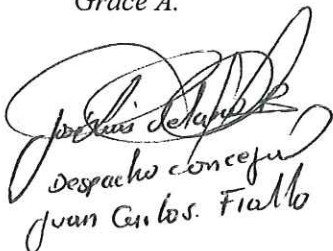 Grace A.
José Luis de la
Despacho concejal
Juan Carlos. Fiallo